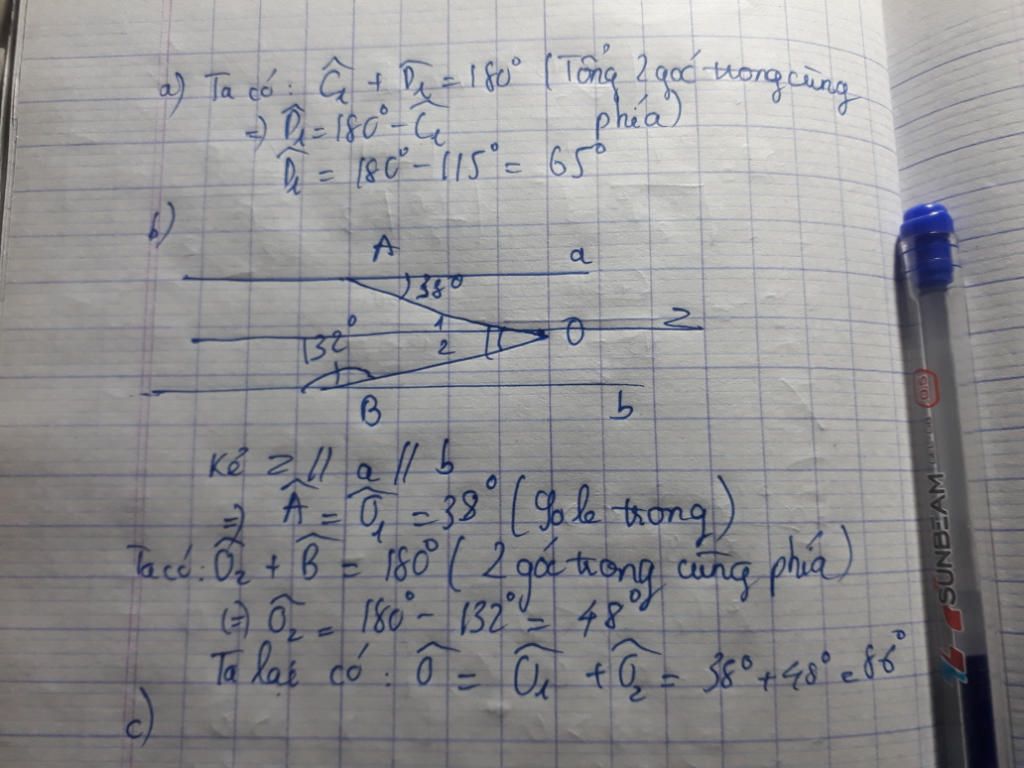 a) Ta có: Ĉ₁ + D̂₁ = 180° (Tổng 2 góc trong cùng
phía)
⇒ D̂₁ = 180° - Ĉ₁
D̂₁ = 180° - 115° = 65°
b)
A a
38°
1 z
132° 2 O
B b
Kẻ z // a // b
⇒ Â = Ô₁ = 38° (So le trong)
Ta có: Ô₂ + B̂ = 180° (2 góc trong cùng phía)
(=) Ô₂ = 180° - 132° = 48°
Ta lại có: Ô = Ô₁ + Ô₂ = 38° + 48° = 86°
c)
0.5
SUNBEAM
TL